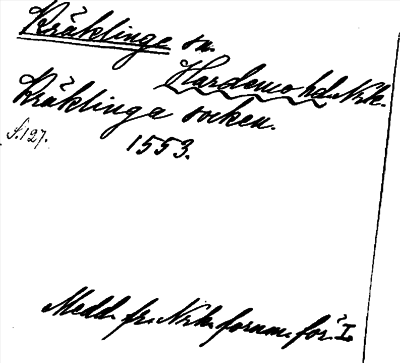 Kräklinge sn.
Hardemo hd. Nrk.
Kräklinga socken.
s.127. 1553.
Medd. fr. Nrk. fornm. för. I.